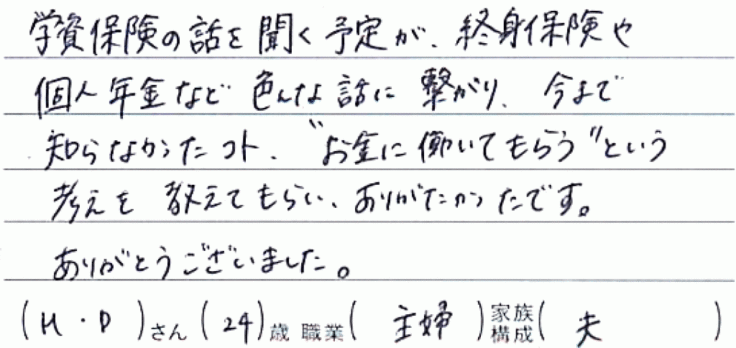 学資保険の話を聞く予定が、終身保険や
個人年金など色んな話に繋がり、今まで
知らなかったコト、"お金に働いてもらう"という
考えを教えてもらい、ありがたかったです。
ありがとうございました。
(H・D)さん(24)歳 職業(主婦)家族構成(夫)